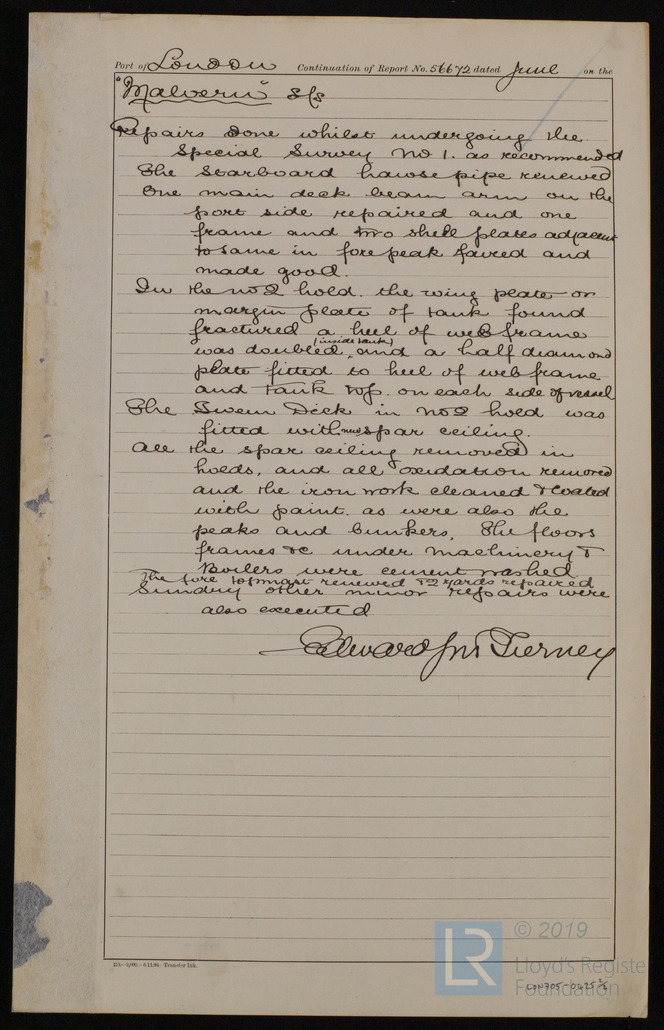 Port of London Continuation of Report No. 56672 dated June on the
"Malvern" s/s
Repairs done whilst undergoing the
Special Survey No 1. as recommended
The Starboard hawse pipe renewed
One main deck beam arm on the
port side repaired and one
frame and two shell plates adjacent
to same in fore peak faired and
made good.
In the no 2 hold. the wing plate or
margin plate of tank found
fractured a heel of web frame
(inside tank)
was doubled, and a half diamond
plate fitted to heel of web frame
and tank top. on each side of vessel
The Tween Deck in No 2 hold was
fitted with new spar ceiling.
All the spar ceiling removed in
holds, and all oxidation removed
and the iron work cleaned & coated
with paint. as were also the
peaks and bunkers. The floors
frames &c under machinery &
Boilers were cement washed.
The fore topmast renewed & 2 yards repaired
Sundry other minor repairs were
also executed
Edward Jno Tierney
© 2019
LR
Lloyd's Register
Foundation
LON705-0425 2/2